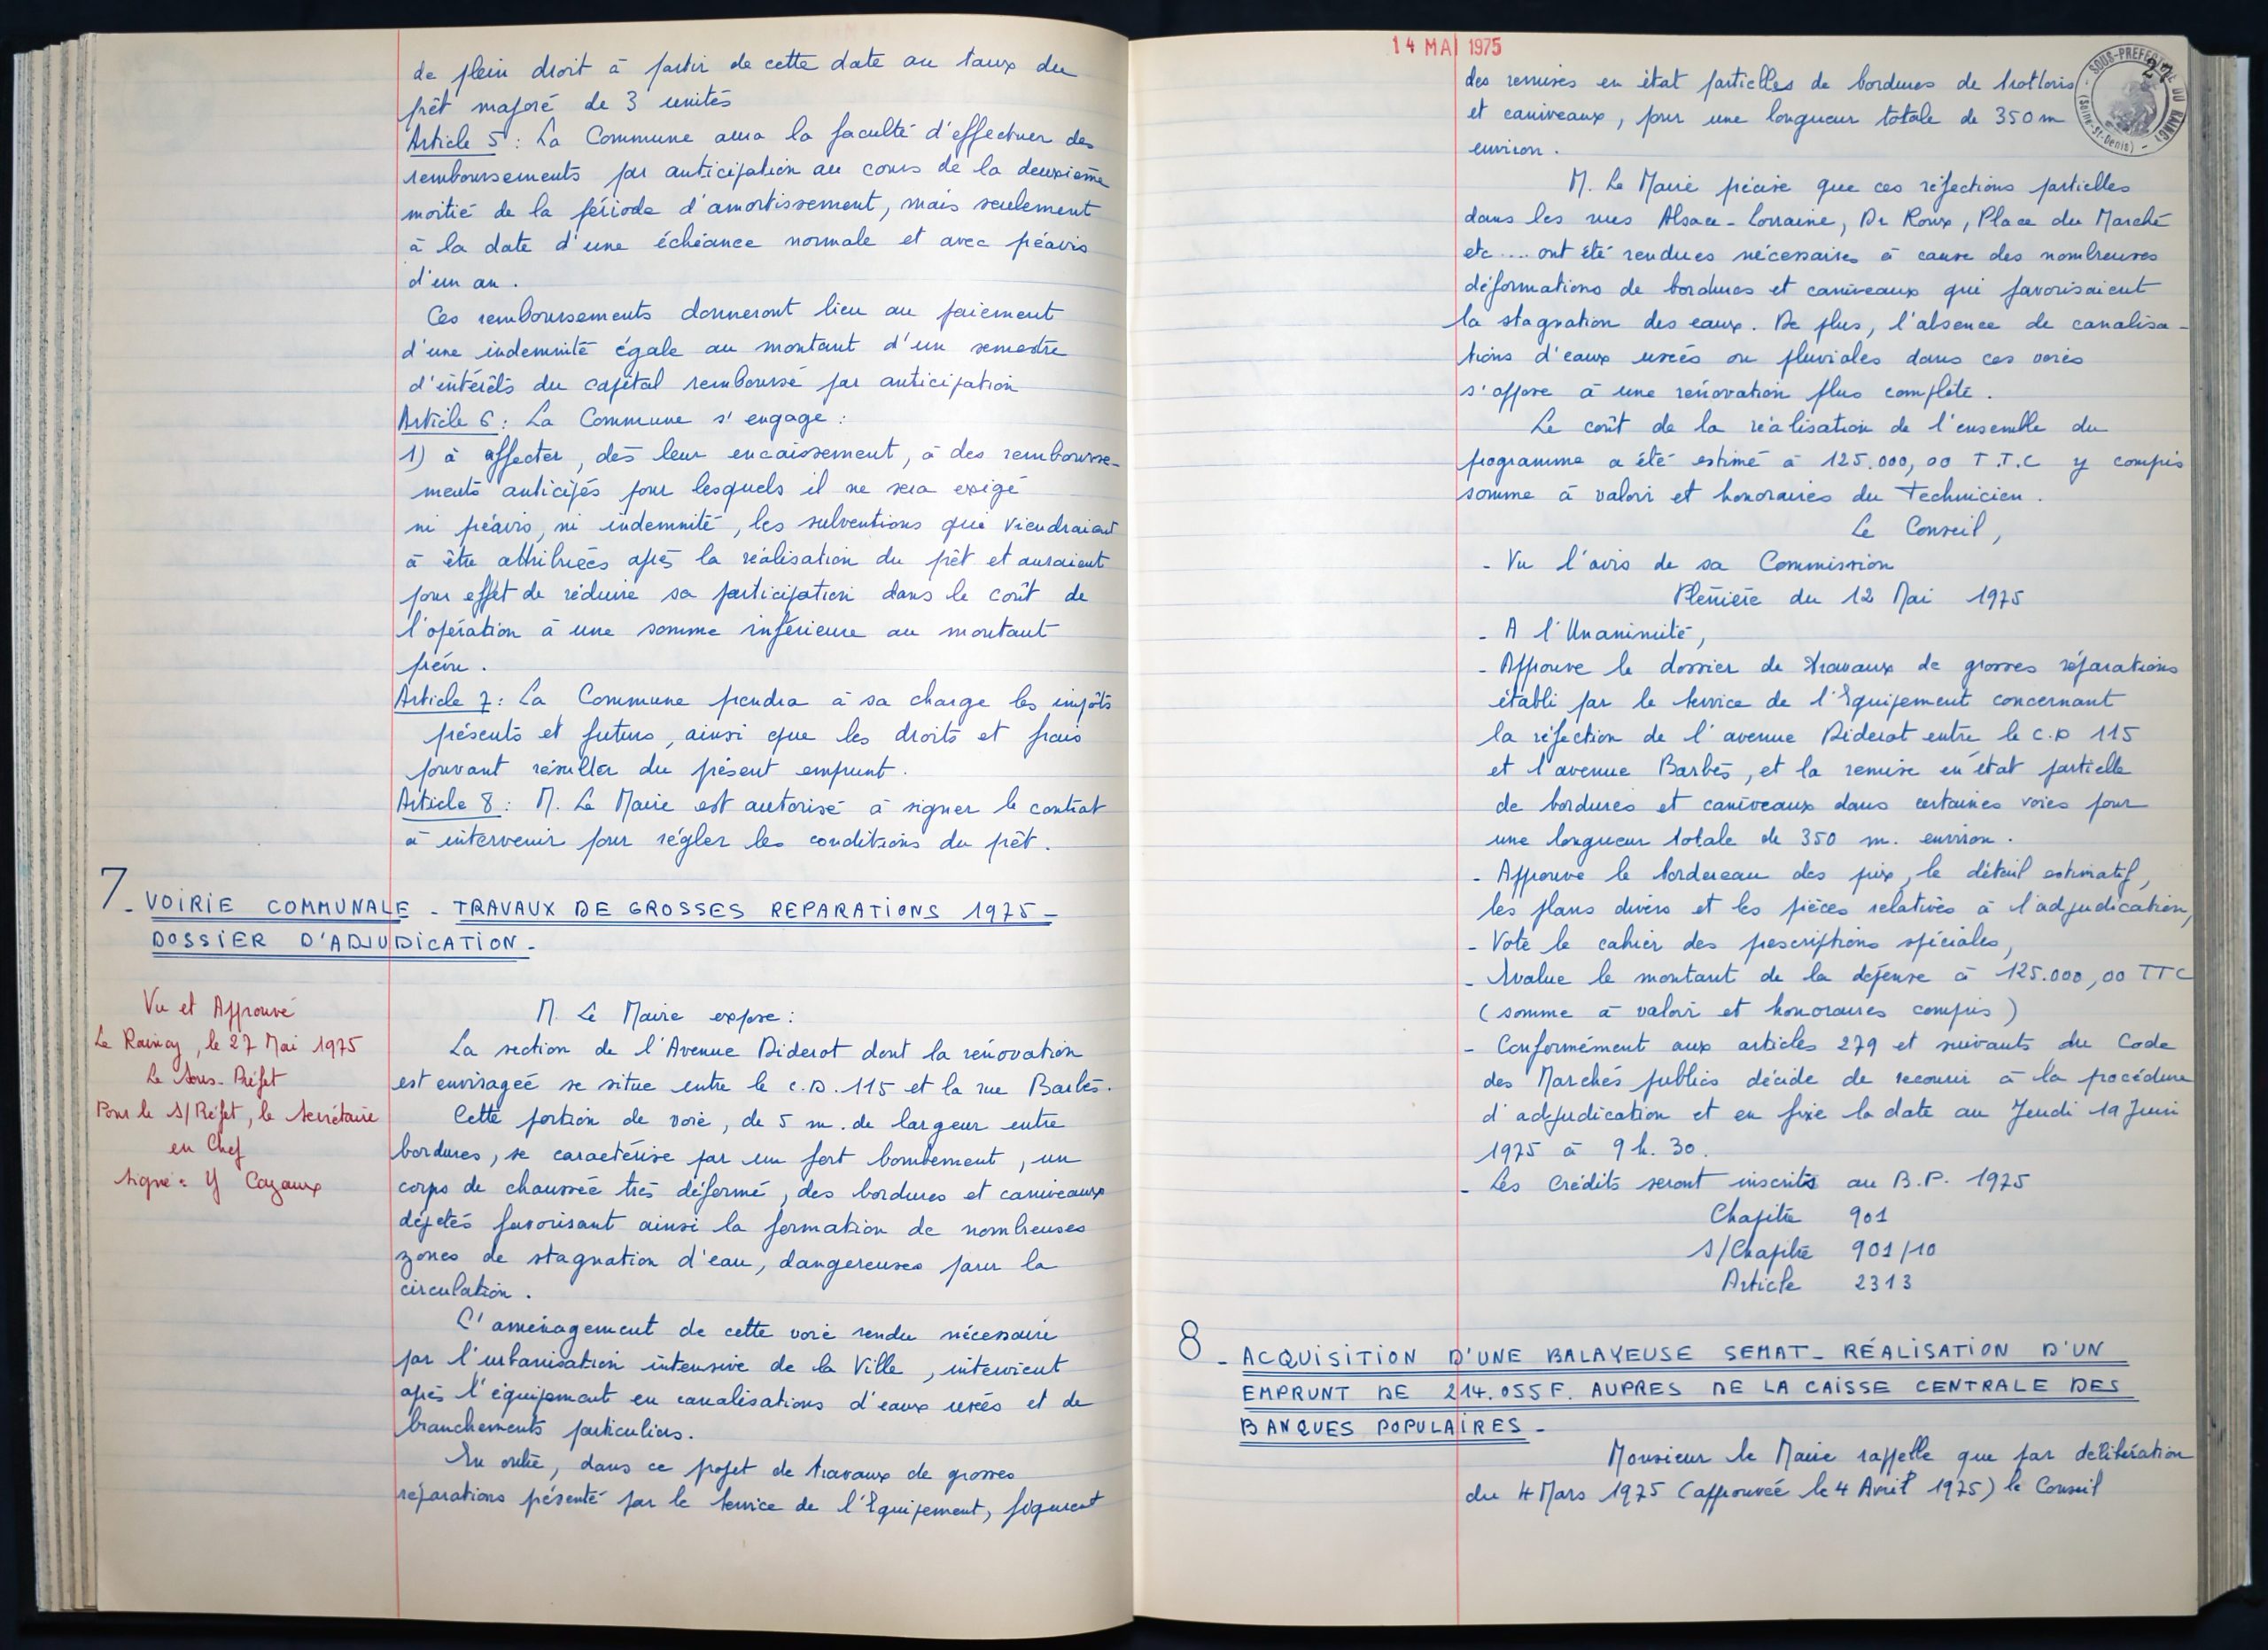 de plein droit à partir de cette date au taux du
prêt majoré de 3 unités
Article 5 : La Commune aura la faculté d'effectuer des
remboursements par anticipation au cours de la deuxième
moitié de la période d'amortissement, mais seulement
à la date d'une échéance normale et avec préavis
d'un an.
Ces remboursements donneront lieu au paiement
d'une indemnité égale au montant d'un semestre
d'intérêts du capital remboursé par anticipation
Article 6 : La Commune s'engage :
1) à affecter, dès leur encaissement, à des rembourse-
ments anticipés pour lesquels il ne sera exigé
ni préavis, ni indemnité, les subventions qui viendraient
à être attribuées après la réalisation du prêt et auraient
pour effet de réduire sa participation dans le coût de
l'opération à une somme inférieure au montant
prévu.
Article 7 : La Commune prendra à sa charge les impôts
présents et futurs, ainsi que les droits et frais
pouvant résulter du présent emprunt.
Article 8 : M. Le Maire est autorisé à signer le contrat
à intervenir pour régler les conditions du prêt.
7 - VOIRIE COMMUNALE - TRAVAUX DE GROSSES REPARATIONS 1975 -
DOSSIER D'ADJUDICATION -
Vu et Approuvé
Le Raincy, le 27 Mai 1975
Le Sous-Préfet
Pour le S/Préfet, le Secrétaire
en Chef
Signé : Y Cazaux
M. Le Maire expose :
La section de l'Avenue Diderot dont la rénovation
est envisagée se situe entre le C.D. 115 et la rue Barbès.
Cette portion de voie, de 5 m. de largeur entre
bordures, se caractérise par un fort bombement, un
corps de chaussée très déformé, des bordures et caniveaux
déjetés favorisant ainsi la formation de nombreuses
zones de stagnation d'eau, dangereuses pour la
circulation.
L'aménagement de cette voie rendu nécessaire
par l'urbanisation intensive de la Ville, intervient
après l'équipement en canalisations d'eaux usées et de
branchements particuliers.
En outre, dans ce projet de travaux de grosses
réparations présenté par le Service de l'Equipement, figurent
14 MAI 1975
SOUS-PREFECTURE DU RAINCY
(Seine-St-Denis)
des remises en état partielles de bordures de trottoirs
et caniveaux, pour une longueur totale de 350 m
environ.
M. Le Maire précise que ces réfections partielles
dans les rues Alsace-Lorraine, Dr Roux, Place du Marché
etc.... ont été rendues nécessaires à cause des nombreuses
déformations de bordures et caniveaux qui favorisaient
la stagnation des eaux. De plus, l'absence de canalisa-
tions d'eaux usées ou pluviales dans ces voies
s'oppose à une rénovation plus complète.
Le coût de la réalisation de l'ensemble du
programme a été estimé à 125.000,00 T.T.C y compris
somme à valoir et honoraires du Technicien.
Le Conseil,
- Vu l'avis de sa Commission
Plénière du 12 Mai 1975
- A l'Unanimité,
- Approuve le dossier de travaux de grosses réparations
établi par le Service de l'Equipement concernant
la réfection de l'avenue Diderot entre le C.D 115
et l'avenue Barbès, et la remise en état partielle
de bordures et caniveaux dans certaines voies pour
une longueur totale de 350 m. environ.
- Approuve le bordereau des prix, le détail estimatif,
les plans divers et les pièces relatives à l'adjudication,
- Vote le cahier des prescriptions spéciales,
- Evalue le montant de la dépense à 125.000,00 TTC
(somme à valoir et honoraires compris)
- Conformément aux articles 279 et suivants du Code
des Marchés publics décide de recourir à la procédure
d'adjudication et en fixe la date au Jeudi 19 Juin
1975 à 9 h. 30.
- Les Crédits seront inscrits au B.P. 1975
Chapitre 901
S/Chapitre 901/10
Article 2313
8 - ACQUISITION D'UNE BALAYEUSE SEMAT - RÉALISATION D'UN
EMPRUNT DE 214.055 F. AUPRES DE LA CAISSE CENTRALE DES
BANQUES POPULAIRES -
Monsieur le Maire rappelle que par délibération
du 4 Mars 1975 (approuvée le 4 Avril 1975) le Conseil